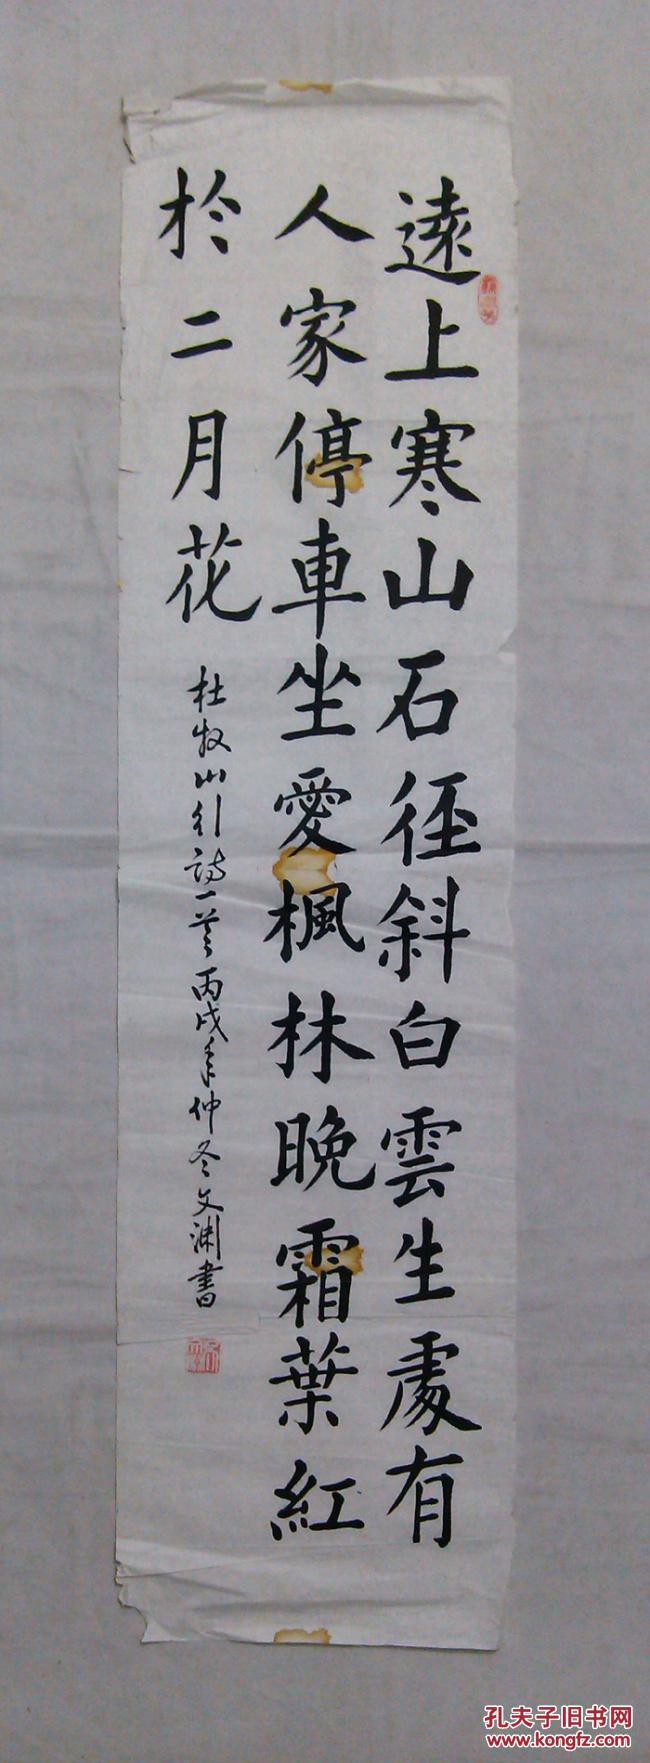 遠上寒山石徑斜白雲生處有
人家停車坐愛楓林晚霜葉紅
於二月花
杜牧山行詩一首丙戌年仲冬文渊書
孔夫子旧书网
www.kongfz.com